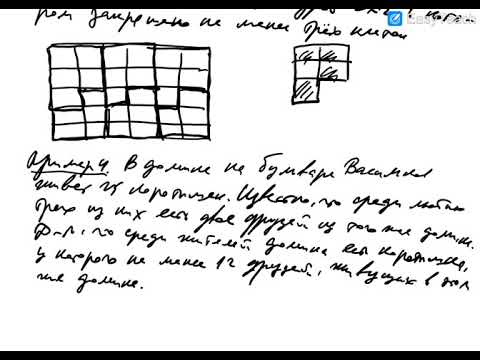 ром закрашено не менее трёх клеток
Пример 4. В домике на бульваре Васильков
живет 25 коротышек. Известно, что среди любых
трех из них есть двое друзей из того же домика.
Д-ть, что среди жителей домика есть коротышка,
у которого не менее 12 друзей, живущих в этом
же домике.